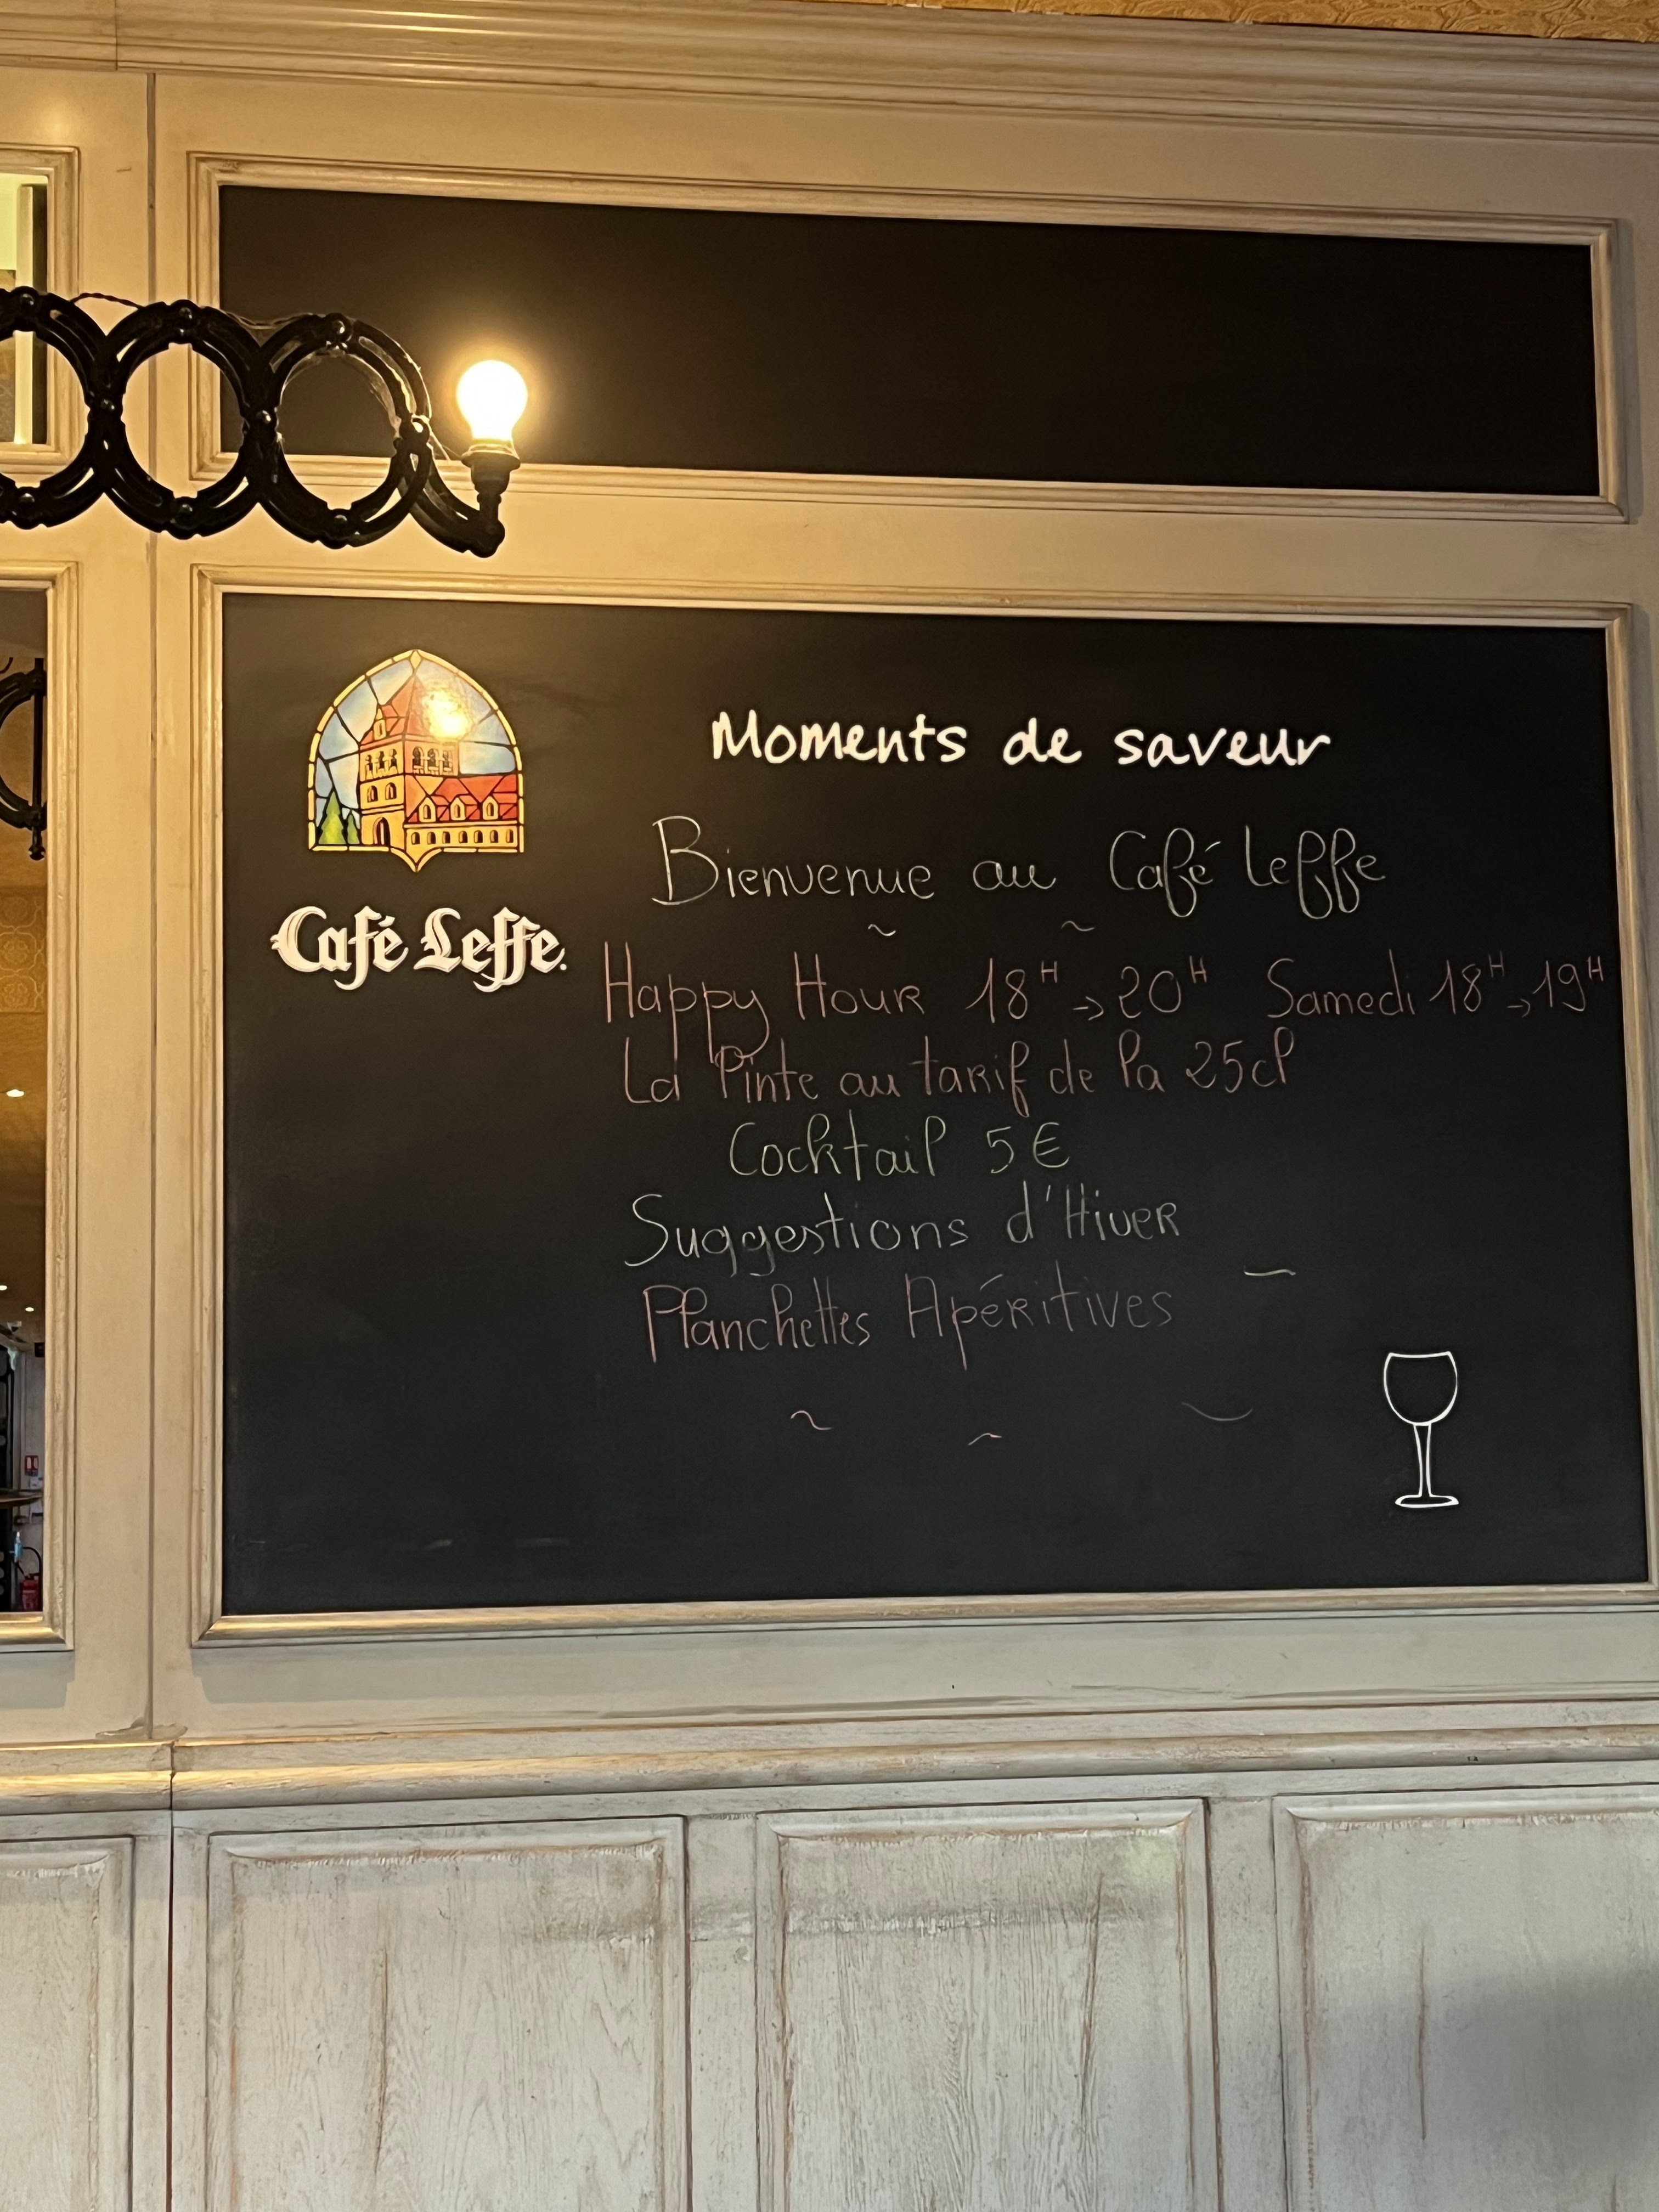 Moments de saveur
Bienvenue au Café Leffe
Café Leffe.
Happy Hour 18H → 20H Samedi 18H → 19H
La Pinte au tarif de la 25cl
Cocktail 5€
Suggestions d'Hiver
Planchettes Apéritives